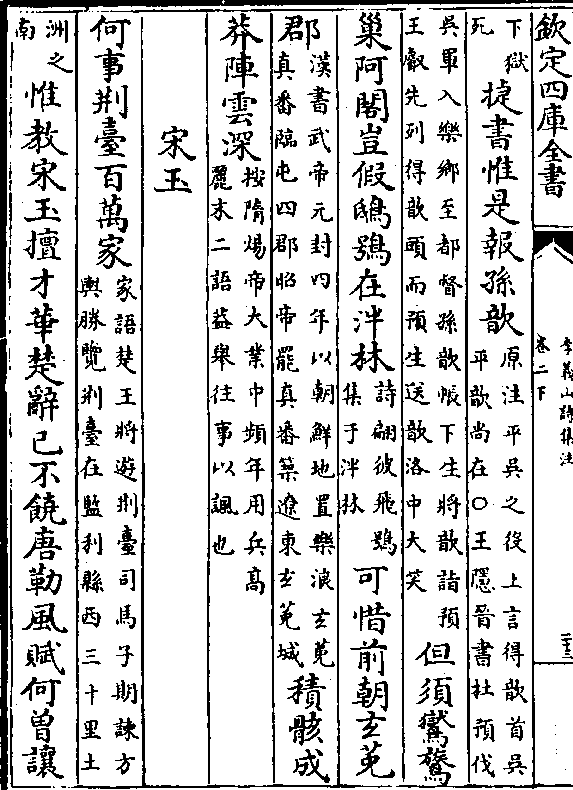 欽定四庫全書
李義山詩集注
卷二下
下獄
死
捷書惟是報孫歆
原注平吳之役上言得歆首吳
平歆尚在〇王隱晉書杜預伐
吳軍入樂鄉至都督孫歆帳下生將歆詣預
王叡先列得歆頭而預生送歆洛中大笑
但須鸑鷟
巢阿閣豈假鴟鴞在泮林
詩翩彼飛鴞
集于泮林
可惜前朝玄菟
郡
漢書武帝元封四年以朝鮮地置樂浪玄菟
真番臨屯四郡昭帝罷真番築遼東玄菟城
積骸成
莽陣雲深
按隋煬帝大業中頻年用兵高
麗末二語蓋舉往事以諷也
宋玉
何事荆臺百萬家
家語楚王將遊荆臺司馬子期諫方
輿勝覽荆臺在監利縣西三十里土
洲之
南
惟教宋玉擅才華楚辭已不饒唐勒風賦何曾讓